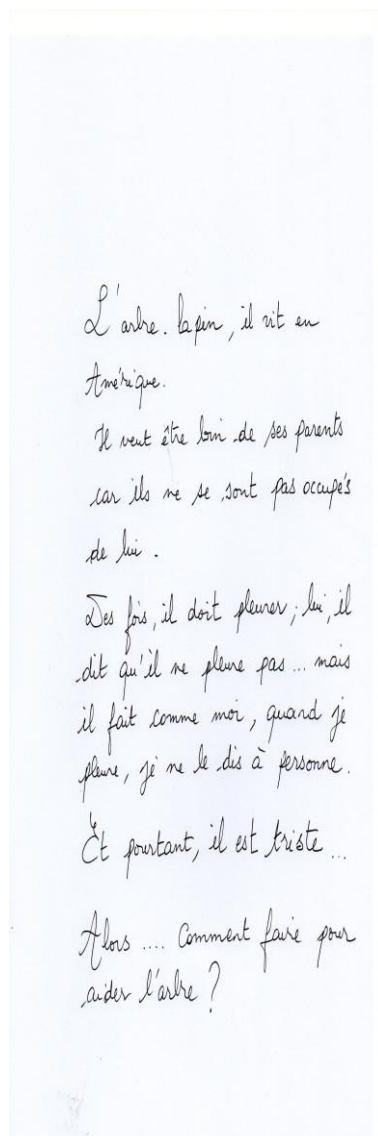 L'arbre.lapin, il vit en
Amérique.
Il veut être loin de ses parents
car ils ne se sont pas occupés
de lui.
Des fois, il doit pleurer; lui, il
dit qu'il ne pleure pas... mais
il fait comme moi, quand je
pleure, je ne le dis à personne.
Et pourtant, il est triste...
Alors .... Comment faire pour
aider l'arbre ?